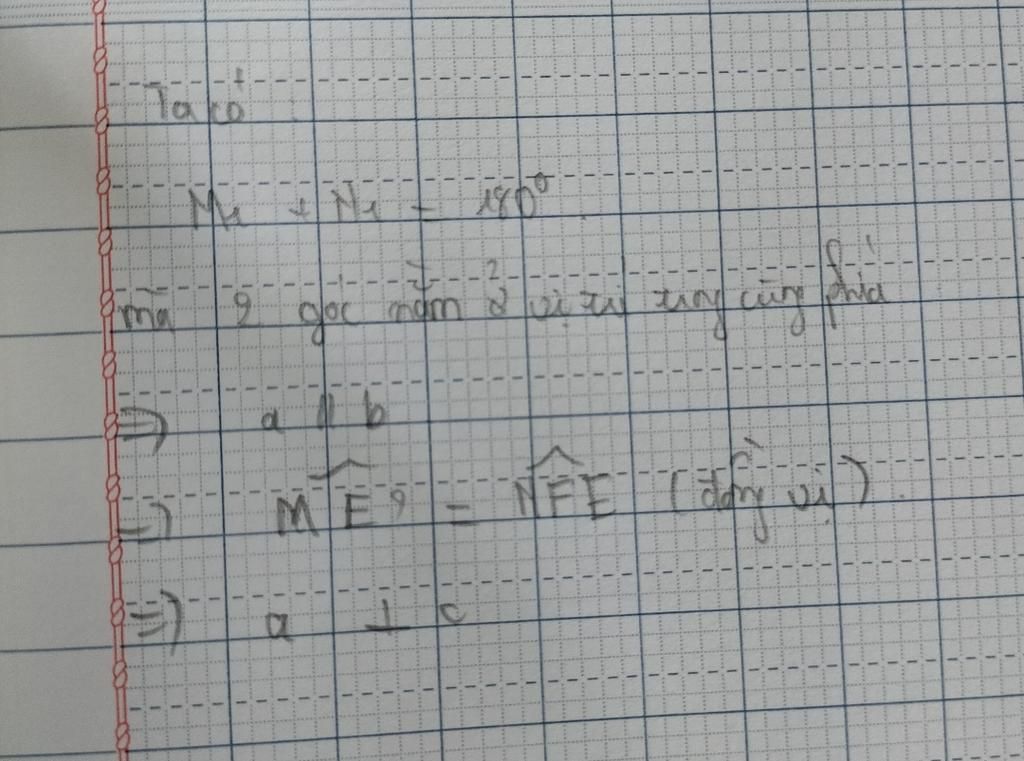 Ta có
M₁ + N₁ = 180°
mà 2 góc nằm ở vị trí trong cùng phía
=> a // b
=> MEc = NFE (đồng vị).
=> a ⊥ c